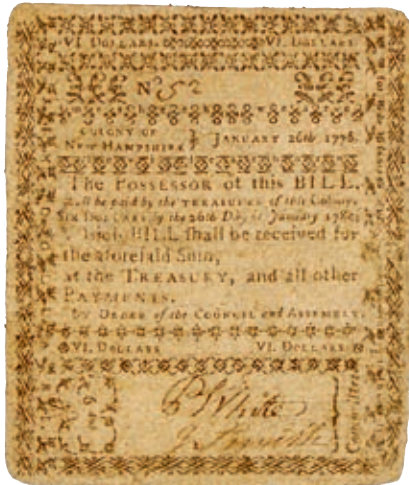 VI. DOLLARS. VI. DOLLARS
No 52
COLONY OF
NEW HAMPSHIRE } JANUARY 26th 1776.
The POSSESSOR of this BILL,
shall be paid by the TREASURER of this Colony,
SIX DOLLARS by the 26th Day of January
This BILL shall be received for
the aforesaid Sum,
at the TREASURY, and all other
PAYMENTS.
BY ORDER of the COUNCIL and ASSEMBLY.
VI. DOLLARS VI. DOLLARS
P White
Committee